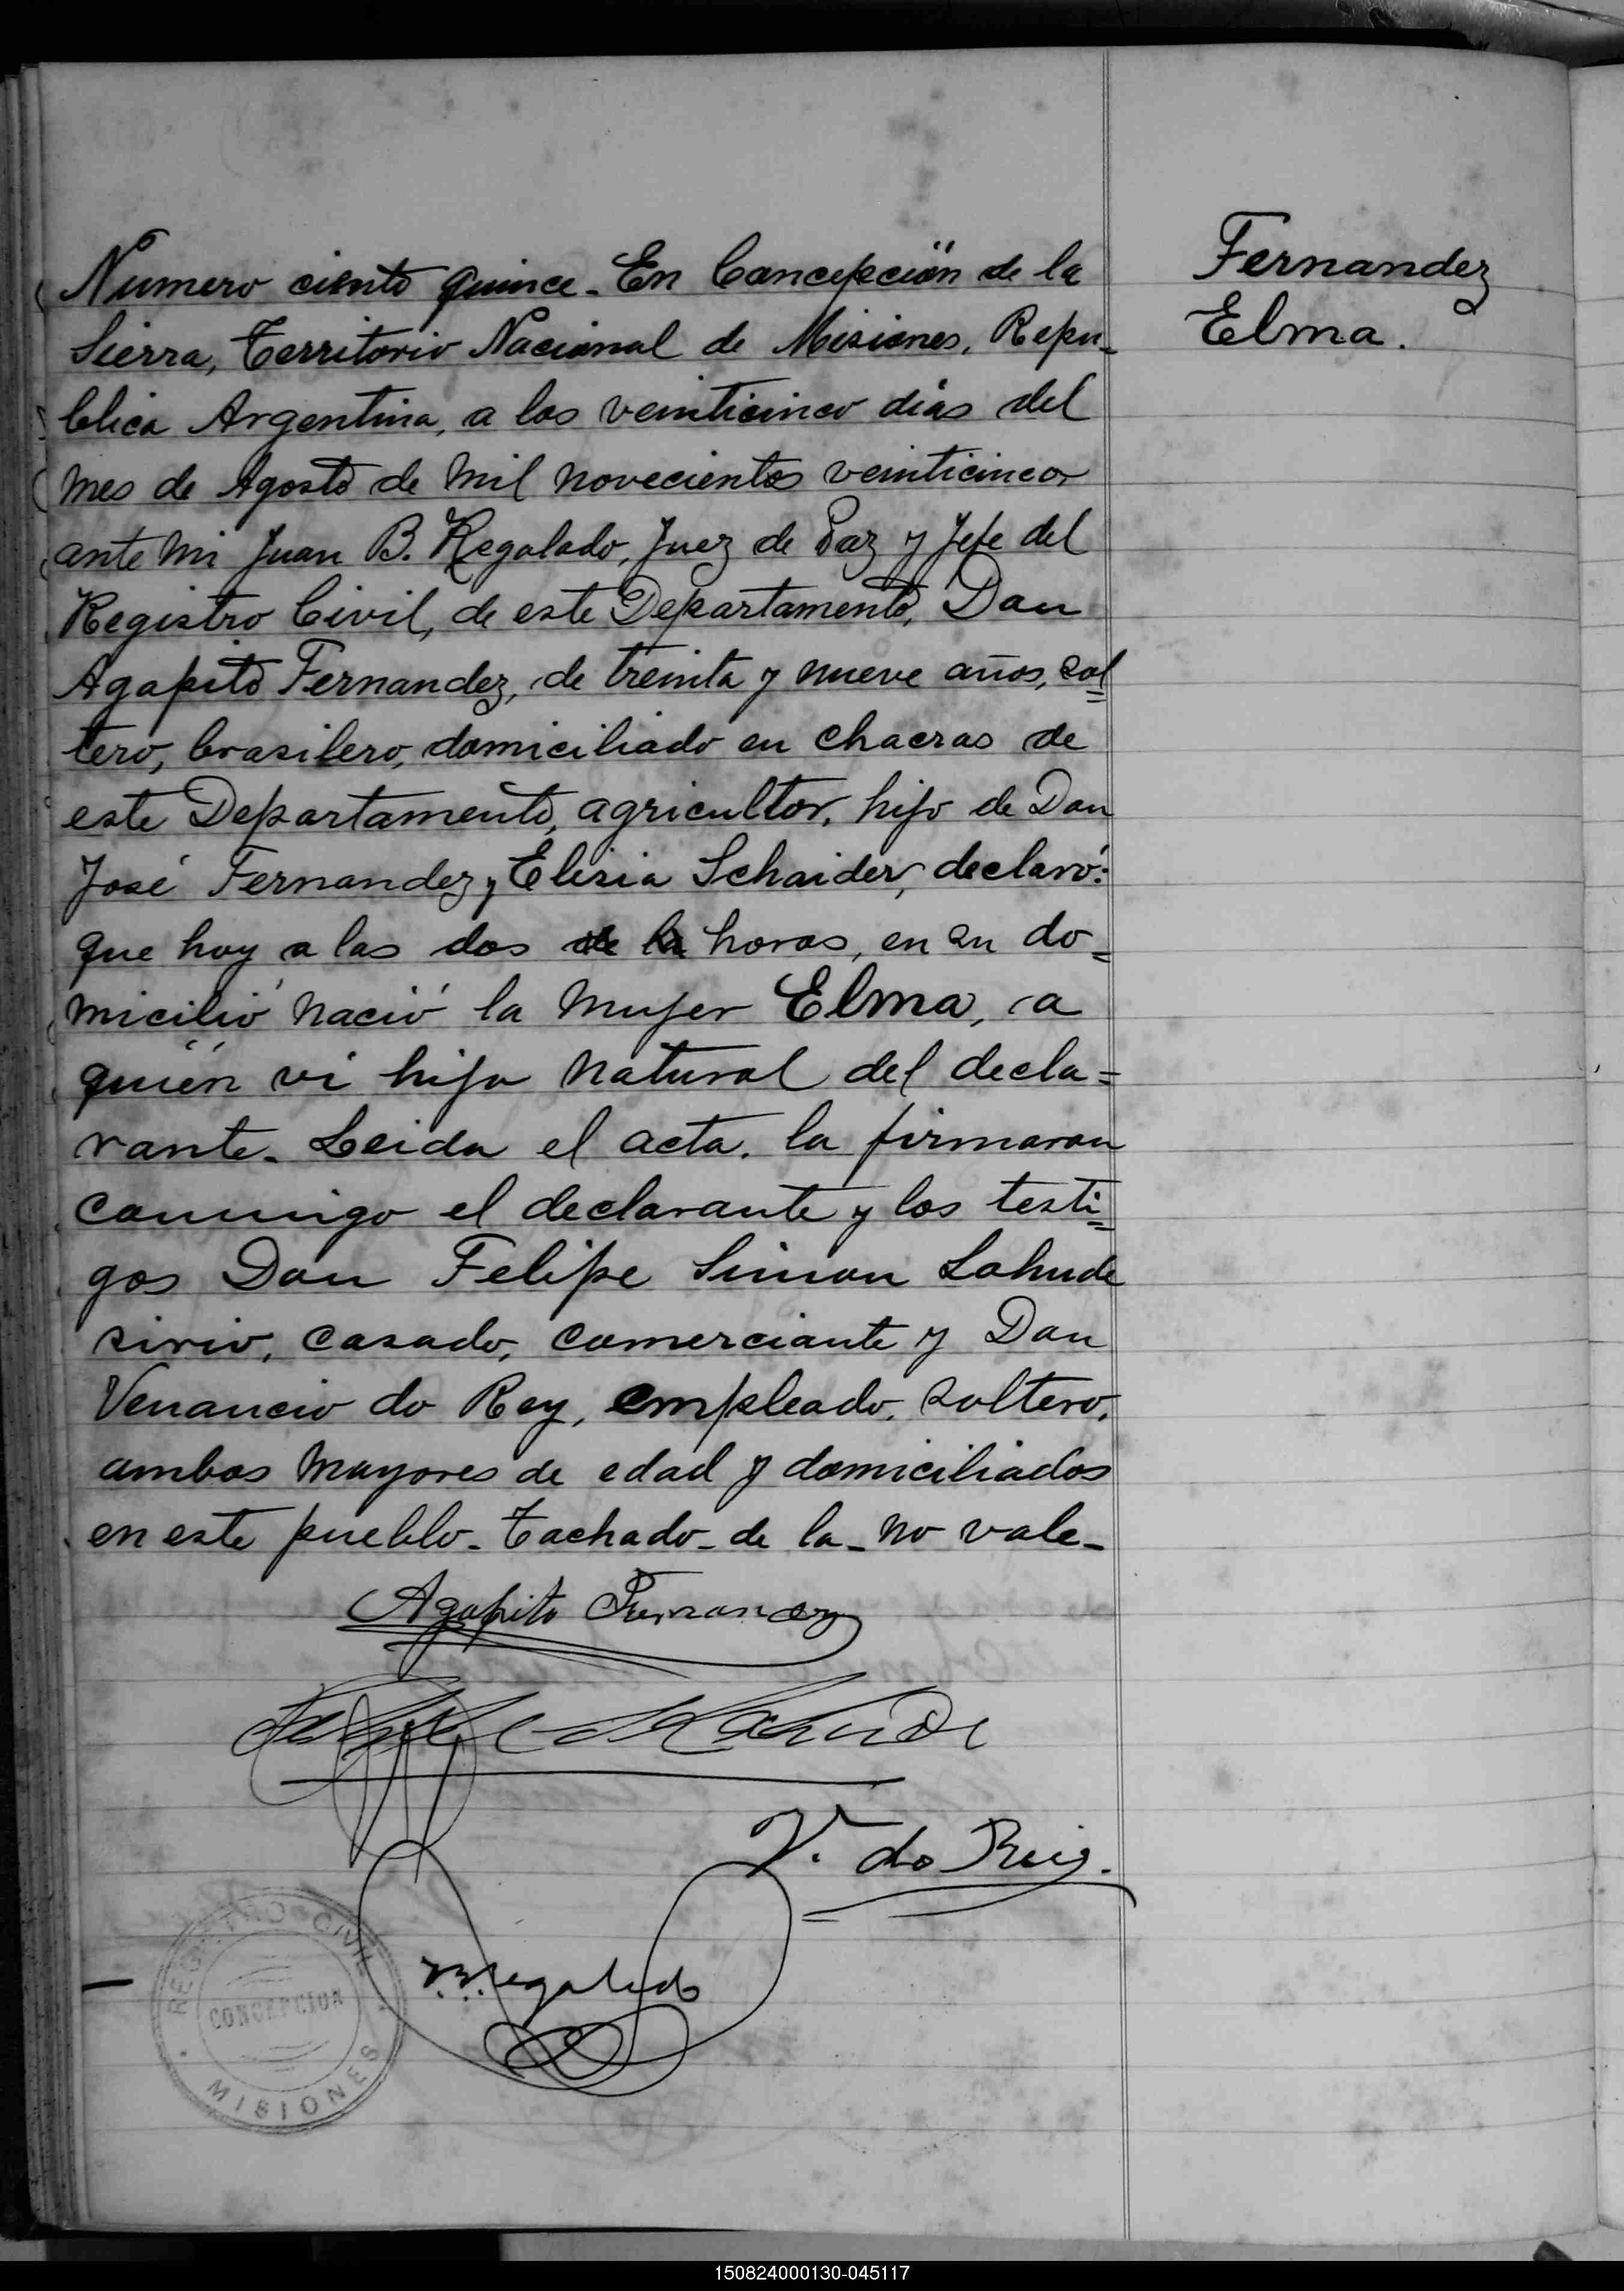 Fernandez
Elma.
Numero ciento quince. En Concepción de la
Sierra, Territorio Nacional de Misiones, Repu-
blica Argentina, a los veinticinco dias del
mes de Agosto de mil novecientos veinticinco
ante mi Juan B. Regalado, Juez de Paz y Jefe del
Registro Civil, de este Departamento, Don
Agapito Fernandez, de treinta y nueve años, sol=
tero, brasilero, domiciliado en chacras de
este Departamento, agricultor, hijo de Don
José Fernandez y Elisia Schaider, declaró:
que hoy a las dos de la horas, en su do=
micilio nació la mujer Elma, a
quien vi hija natural del decla=
rante. Leida el acta, la firmaron
conmigo el declarante y los testi=
gos Don Felipe Simon Lahude
sirio, casado, comerciante y Don
Venancio do Rey, empleado, soltero,
ambos mayores de edad y domiciliados
en este pueblo. Tachado - de la - no vale -
Agapito Fernandez
Lahude
V. do Reis.
Regalado
REGISTRO CIVIL
CONCEPCION
MISIONES
150824000130-045117